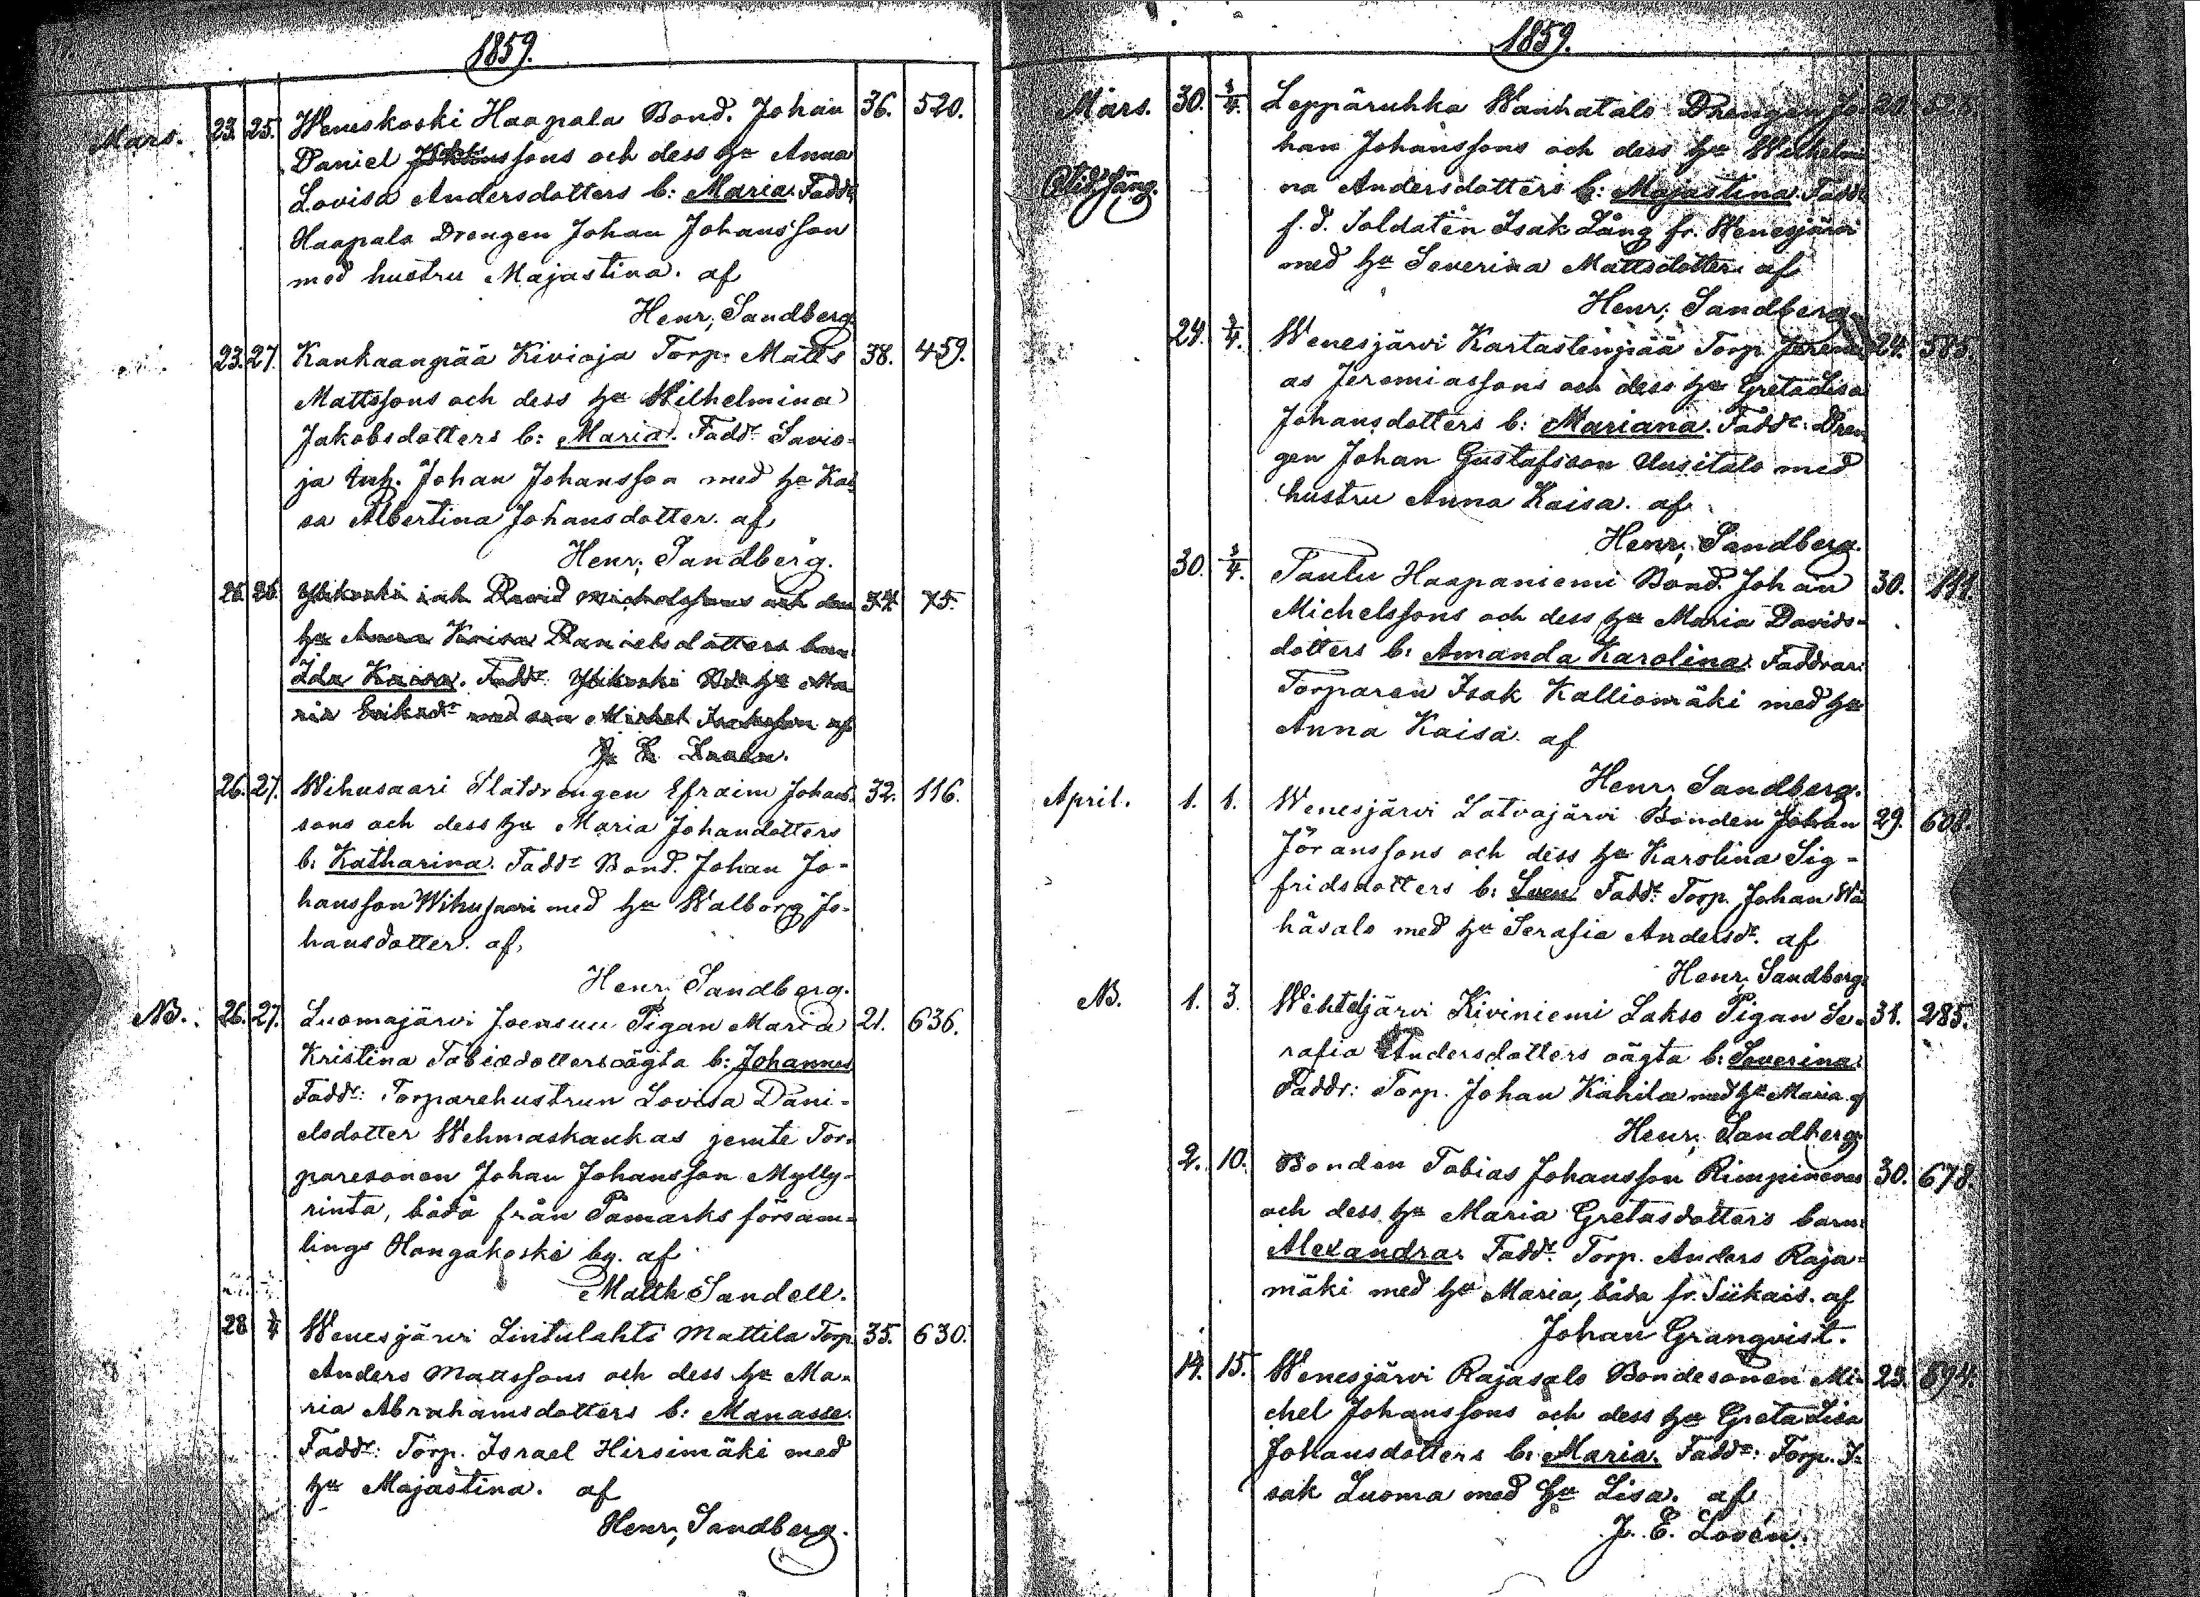 1859.
Mars. 23. 25. Weneskoski Haapala Bond. Johan 36. 520.
Daniel Johanssons och dess hu Anna
Lovisa Andersdotters b: Maria. Faddr
Haapala Drengen Johan Johansson
med hustru Majastina. af
Henr. Sandberg.
23. 27. Kankaanpää Kivioja Torp. Matts 38. 459.
Mattssons och dess hu Wilhelmina
Jakobsdotters b: Maria. Faddr Savio-
ja Inh. Johan Johansson med hu Kai
sa Albertina Johansdotter. af
Henr. Sandberg.
25. 26. Ylikoski inh David Michelssons och dess 34. 75.
hu Anna Kaisa Danielsdotters barn
Ida Kaisa. Faddr Ylikoski Bde hu Ma
ria Eriksdr med son Michel Isaksson af
J. E. Lovén.
26. 27. Wihusaari Slätdrengen Efraim Johans- 32. 116.
sons och dess hu Maria Johandotters
b: Katharina. Faddr Bond. Johan Jo-
hansson Wihusaari med hu Walborg Jo-
hansdotter. af
Henr. Sandberg.
NB. 26. 27. Luomajärvi Joensuu Pigan Maria 21. 636.
Kristina Tobiædotters oägta b: Johannes
Faddr: Torparehustrun Lovisa Dani-
elsdotter Wehmaskankas jemte Tor-
paresonen Johan Johansson Mylly-
rinta, båda från Påmarks försam-
lings Hongakoski by. af
Matth Sandell.
28 3/4 Wenesjärvi Lintulahti Mattila Torp. 35. 630.
Anders Mattssons och dess hu Ma-
ria Abrahamsdotters b: Manasse.
Faddr: Torp. Israel Hirsimäki med
hu Majastina. af
Henr. Sandberg.
1859.
Mars. 30. 3/4. Leppäruhka Wanhatalo Drengen Jo-
han Johanssons och dess hu Wilhelmi
na Andersdotters b: Majastina. Faddr
f. d. Soldaten Isak Lång fr. Wenesjärvi
med hu Severina Mattsdotter. af
Henr. Sandberg.
24. 3/4. Wenesjärvi Kartastenpää Torp. Jeremi 24. 585.
as Jeremiassons och dess hu Greta Lisa
Johansdotters b: Mariana. Faddr: Dren
gen Johan Gustafsson Uusitalo med
hustru Anna Kaisa. af
Henr. Sandberg.
30. 3/4. Tautu Haapaniemi Bond. Johan 30. 111.
Michelssons och dess hu Maria Davids-
dotters b: Amanda Karolina. Faddrar:
Torparen Isak Kalliomäki med hu
Anna Kaisa. af
Henr. Sandberg.
April. 1. 1. Wenesjärvi Latvajärvi Bonden Johan 29. 608.
Jöranssons och dess hu Karolina Sig-
fridsdotters b: Sven. Faddr: Torp. Johan Wä
häsalo med hu Serafia Andersdr. af
Henr. Sandberg.
NB. 1. 3. Wihteljärvi Kiviniemi Lakso Pigan Se- 31. 285.
rafia Andersdotters oägta b: Severina.
Faddr: Torp. Johan Kahila med hu Maria. af
Henr. Sandberg.
2. 10. Bonden Tobias Johansson Rimpinenes 30. 678.
och dess hu Maria Gretasdotters barn:
Alexandra. Faddr Torp. Anders Raja-
mäki med hu Maria, båda fr. Siikais. af
Johan Granqvist.
14. 15. Wenesjärvi Rajasalo Bondesonen Mi- 23. 594.
chel Johanssons och dess hu Greta Lisa
Johansdotters b: Maria. Faddr: Torp. I-
sak Luoma med hu Lisa. af
J. E. Lovén.